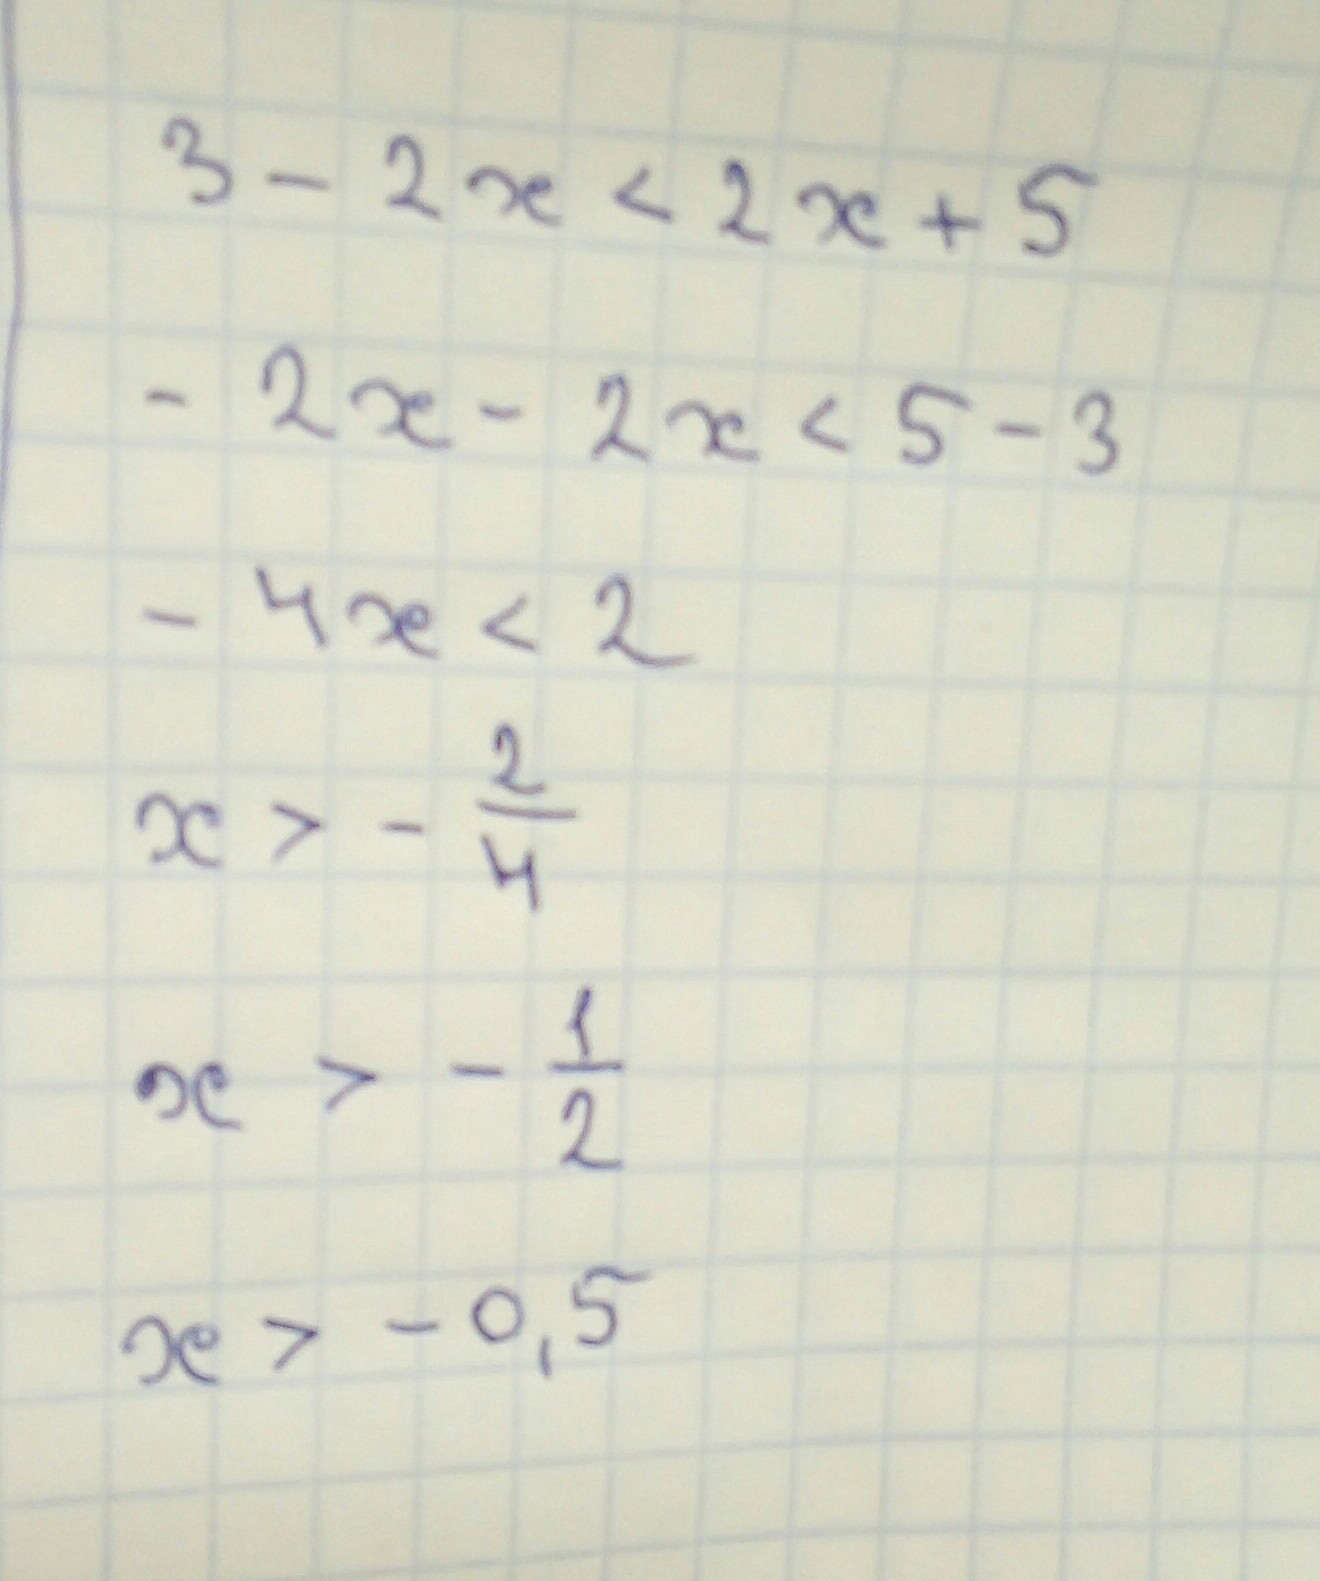 3 - 2x < 2x + 5
- 2x - 2x < 5 - 3
- 4x < 2
x > - 2/4
x > - 1/2
x > - 0,5